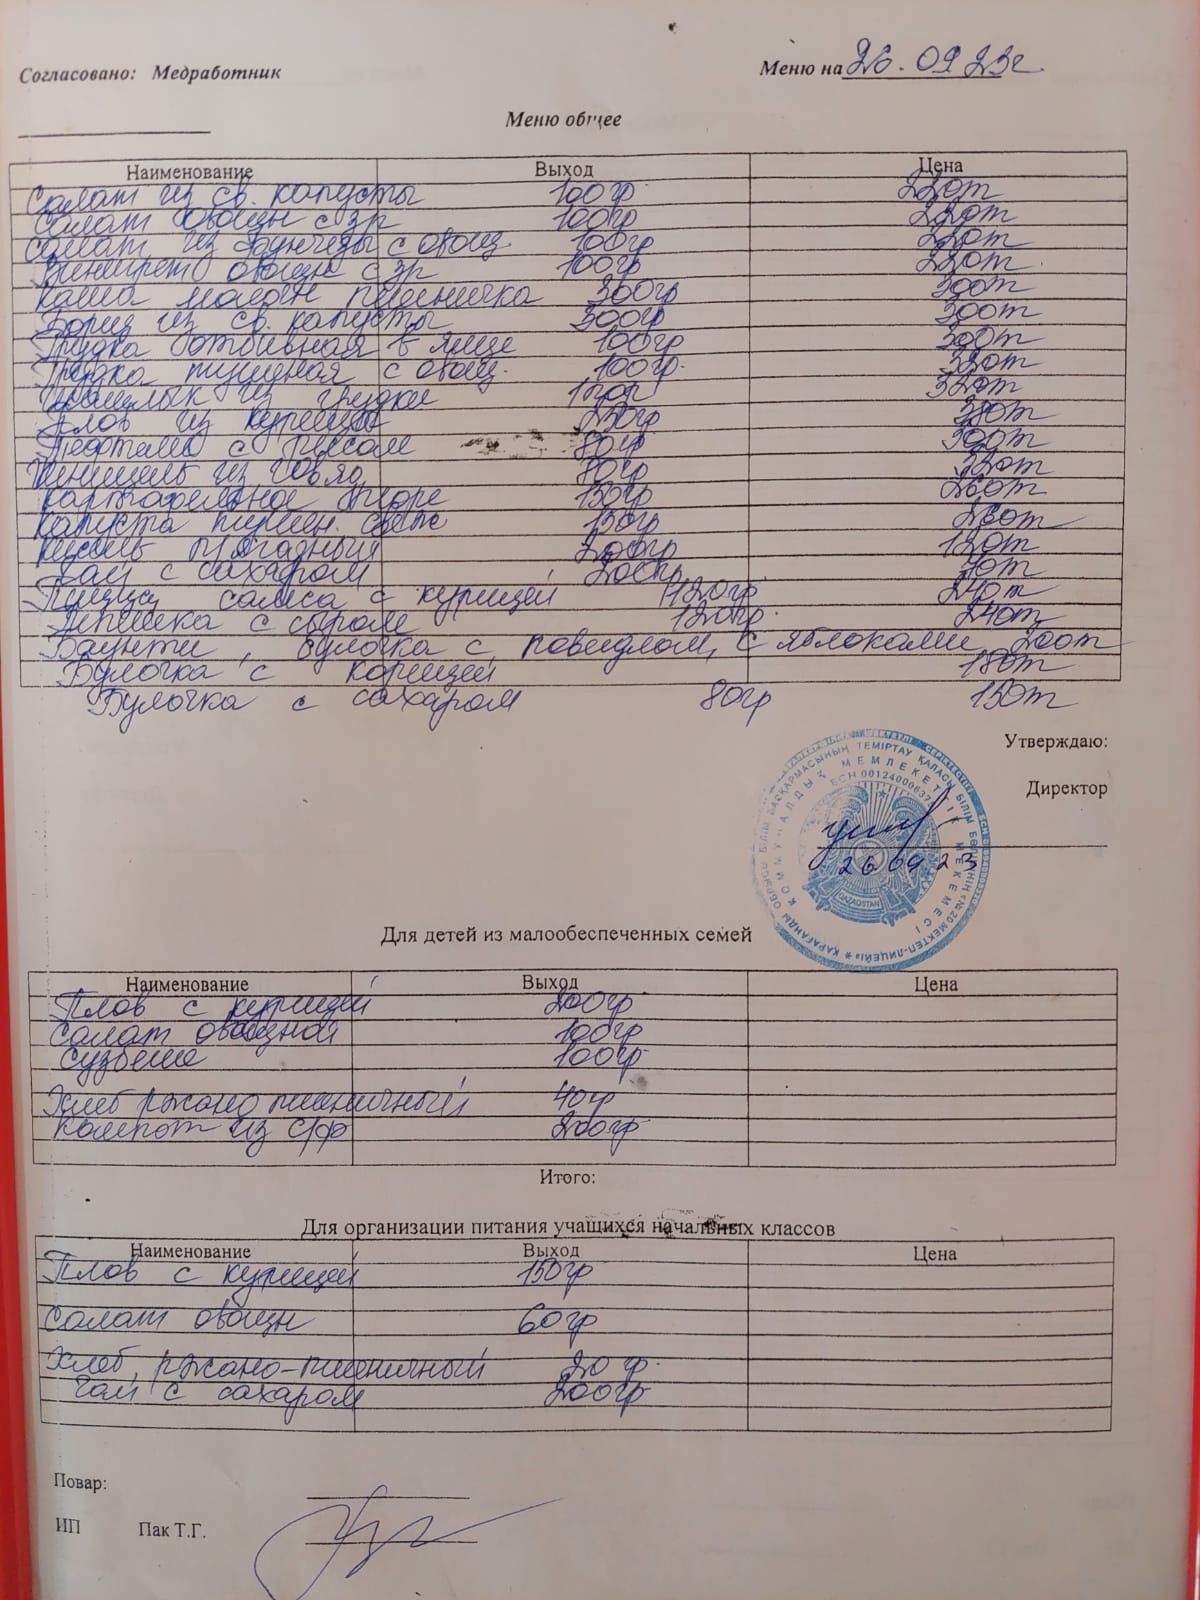 Согласовано: Медработник
Меню на 26.09 23г.
Меню общее
Наименование Выход Цена
Салат из св. капусты 100гр 220т
Салат овощн с зр 100гр 220т
Салат из с овощ. 100гр 220т
Винигрет овощн с зр 100гр 220т
Каша молочн пшеничка 300гр 300т
Борщ из св. капусты 300гр 300т
Грудка отбивная в яйце 100гр 300т
Грудка с овощ. 100гр. 320т
Шашлык из грудки 100гр 320т
Плов из курицы 250гр 380т
Тефтели с рисом 80гр 300т
Шницель из говяд 80гр 320т
Картофельное пюре 150гр 260т
Капуста тушен. 150гр 260т
Кисель ягодный 200гр 120т
Чай с сахаром 200гр 70т
Пицца с курицей 120гр 240т
Лепешка с сыром 120гр. 240т
Баунти, булочка с повидлом, с яблоками 200т
Булочка с корицей 180т
Булочка с сахаром 80гр 150т
Утверждаю:
Директор
26 09 23
ҚАРАҒАНДЫ ОБЛЫСЫ БІЛІМ БАСҚАРМАСЫНЫҢ ТЕМІРТАУ ҚАЛАСЫ БІЛІМ БӨЛІМІНІҢ «№20 МЕКТЕП-ЛИЦЕЙІ»
КОММУНАЛДЫҚ МЕМЛЕКЕТТІК МЕКЕМЕСІ
QAZAQSTAN
Для детей из малообеспеченных семей
Наименование Выход Цена
Плов с курицей 200гр
Салат овощной 100гр
Сузбеше 100гр
Хлеб ржано пшеничный 40гр
Компот из с/ф 200гр
Итого:
Для организации питания учащихся начальных классов
Наименование Выход Цена
Плов с курицей 150гр
Салат овощн 60гр
Хлеб ржано-пшеничный 20 гр.
Чай с сахаром 200гр
Повар:
ИП Пак Т.Г.